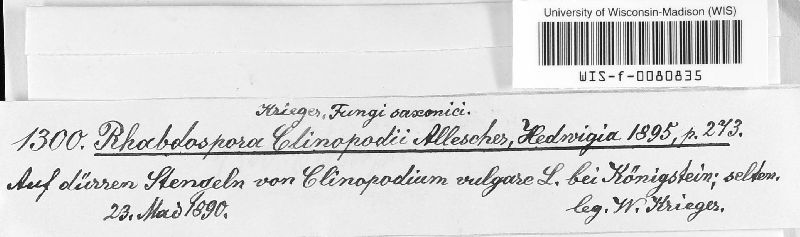 University of Wisconsin-Madison (WIS)
WIS-f-0080835
Krieger, Fungi saxonici.
1300. Rhabdospora Clinopodii Allescher, Hedwigia 1895, p. 273.
Auf dürren Stengeln von Clinopodium vulgare L. bei Königstein; selten.
23. Mad 1890.
leg. W. Krieger.